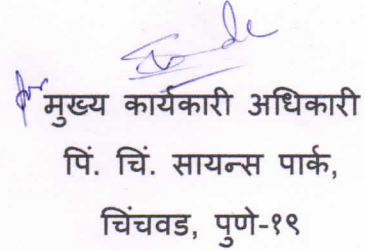 for मुख्य कार्यकारी अधिकारी
पिं. चिं. सायन्स पार्क,
चिंचवड, पुणे-१९